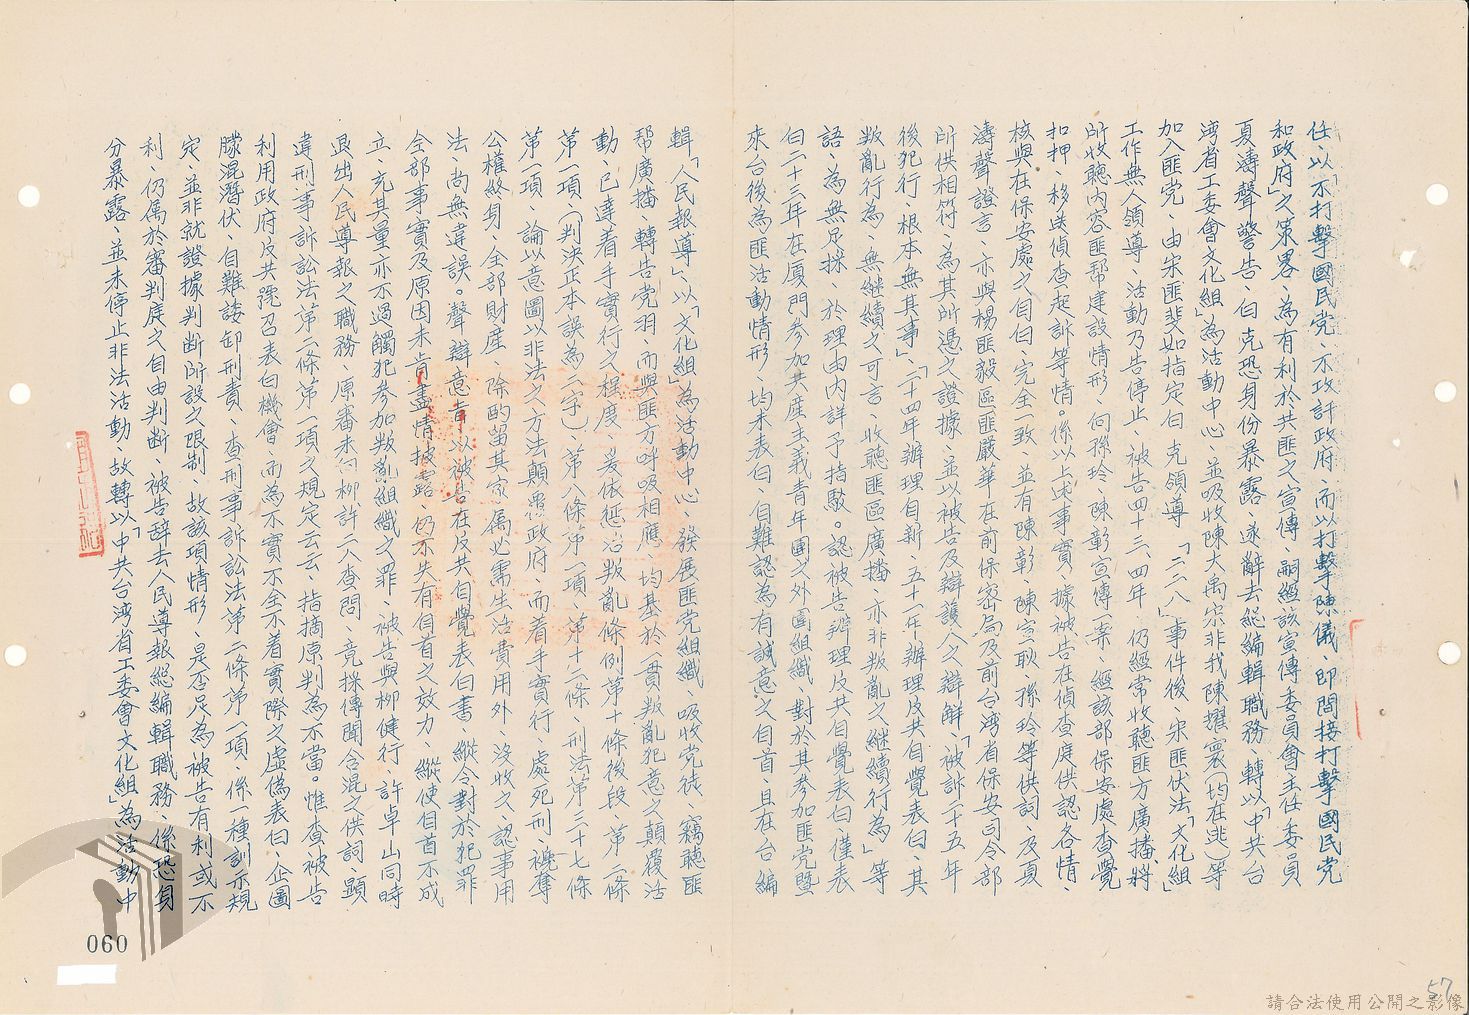 任、以「不打擊國民党、不攻訐政府、而以打擊陳儀、即間接打擊國民党
和政府」之策畧、為有利於共匪之宣傳、嗣經該宣傳委員會主任委員
夏濤聲警告、白克恐身份暴露、遂辭去総編輯職務、轉以「中共台
湾省工委會文化組」為活動中心、並吸收陳大禹宋非我陳耀寰(均在逃)等
加入匪党、由宋匪斐如指定白克領導「二二八」事件後、宋匪伏法「文化組」
工作無人領導、活動乃告停止、被告四十三、四年、仍經常收聽匪方廣播、將
所收聽内容匪帮建設情形、向孫玲、陳彰宣傳、案經該部保安處查覺
扣押、移送偵查起訴等情。係以上述事實、據被告在偵查庭供認各情、
核與在保安處之自白、完全一致、並有陳彰、陳宣耿、孫玲等供詞、及夏
濤聲證言、亦與楊匪毅區匪嚴華在前保密局及前台湾省保安司令部
所供相符、為其所憑之證據、並以被告及辯護人之辯解、「被訴二十五年
後犯行、根本無其事」、「二十四年辦理自新、五十一年辦理反共自覺表白、其
叛亂行為、無継續之可言、收聽匪區廣播、亦非叛亂之継續行為」等
語、為無足採、於理由内詳予指駁。認被告辦理反共自覺表白、僅表
白二十三年在厦門參加共產主義青年團之外圍組織、對於其參加匪党暨
來台後為匪活動情形、均未表白、自難認為有誠意之自首、且在台編
輯「人民報導」、以「文化組」為活動中心、發展匪党組織、吸收党徒、竊聽匪
帮廣播、轉告党羽、而與匪方呼吸相應、均基於一貫叛亂犯意之顛覆活
動、已達着手實行之程度、爰依惩治叛亂條例第十條後段、第二條
第一項、(判決正本誤為二字)、第八條第一項、第十二條、刑法第三十七條
第一項、論以意圖以非法之方法顛覆政府、而着手實行、處死刑、褫奪
公權終身、全部財產、除酌留其家屬必需生活費用外、沒收之、認事用
法、尚無違誤。聲辯意旨以被告在反共自覺表白書、縱令對於犯罪
全部事實及原因未肯盡情披露、仍不失有自首之效力、縱使自首不成
立、充其量亦不過觸犯參加叛亂組織之罪、被告與柳健行、許卓山同時
退出人民導報之職務、原審未向柳許二人查問、竟採傳聞含混之供詞、顯
違刑事訴訟法第二條第一項之規定云云、指摘原判為不當。惟查被告
利用政府反共號召表白機會、而為不實不全不着實際之虛偽表白、企圖
朦混潛伏、自難諉卸刑責、查刑事訴訟法第二條第一項、係一種訓示規
定、並非就證據判断所設之限制、故該項情形、是否足為被告有利或不
利、仍属於審判庭之自由判断、被告辞去人民導報総編輯職務、係恐身
分暴露、並未停止非法活動、故轉以「中共台湾省工委會文化組」為活動中
060
57
請合法使用公開之影像